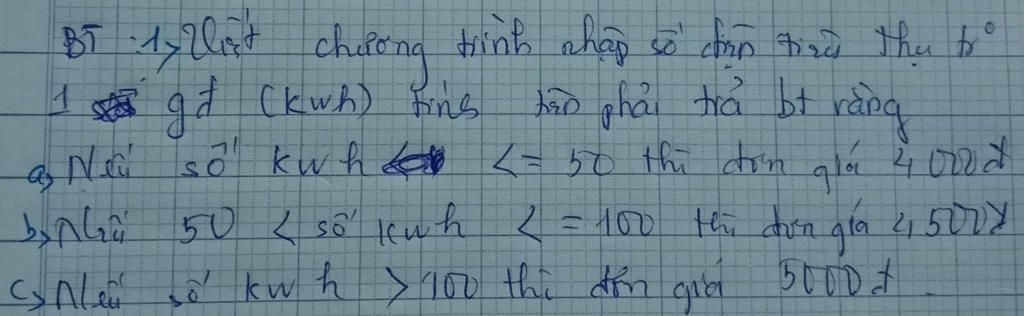 BT :1, Viết chương trình nhập số điện tiêu thụ
1 gđ (kwh) tính tiền phải trả bt rằng
a, Nếu số kwh <= 50 thì đơn giá 4000đ
b, Nếu 50 < số kwh <= 100 thì đơn giá 4500đ
c, Nếu số kwh > 100 thì đơn giá 5000đ